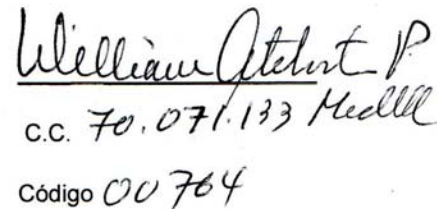 William Atehort P.
C.C. 70.071.133 Medell
Código 00764